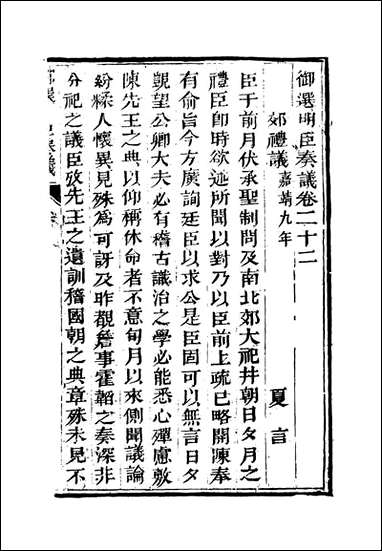 御選明臣奏議卷二十二
郊禮議嘉靖九年
夏言
臣于前月伏承聖制問及南北郊大祀并朝日夕月之
禮臣卽時欲述所聞以對乃以臣前上疏已略開陳奉
有俞旨今方廣詢廷臣以求公是臣固可以無言日夕
覬望公卿大夫必有稽古識治之學必能悉心殫慮敷
陳先王之典以仰稱休命者不意旬月以來側聞議論
紛糅人懷異見殊為可訝及昨觀詹事霍韜之奏深非
分祀之議臣攷先王之遺訓稽國朝之典章殊未見不